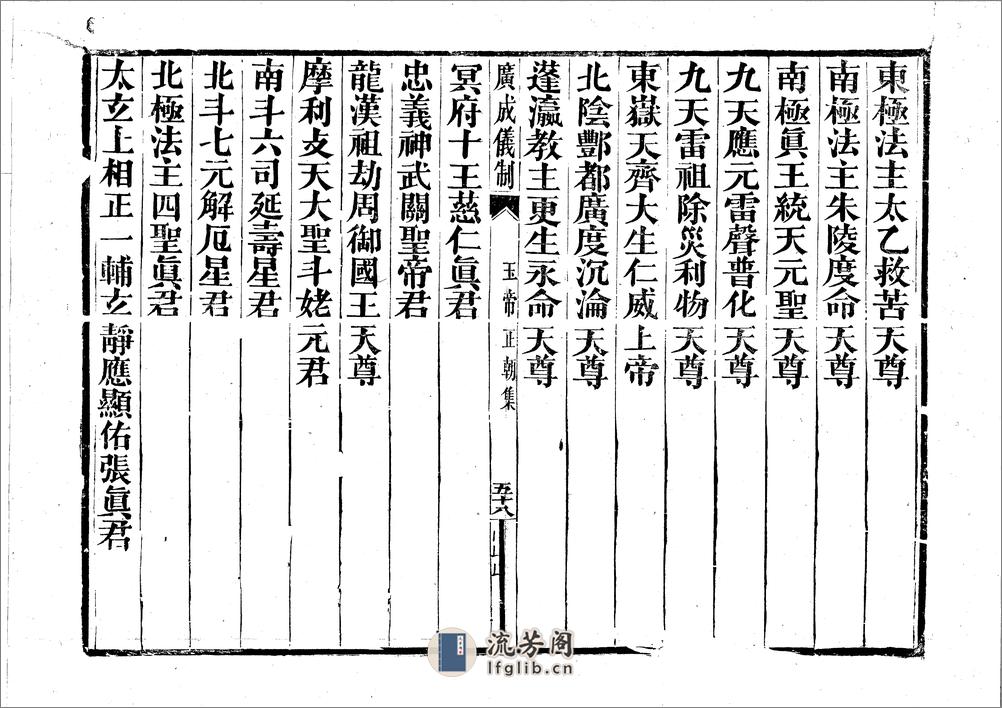 東極法主太乙救苦天尊
南極法主朱陵度命天尊
南極眞王統天元聖天尊
九天應元雷聲普化天尊
九天雷祖除災利物天尊
東嶽天齊大生仁威上帝
北陰酆都廣度沉淪天尊
蓬瀛教主更生永命天尊
廣成儀制 玉帝正朝集 五十八
冥府十王慈仁眞君
忠義神武關聖帝君
龍漢祖劫周御國王天尊
摩利攴天大聖斗姥元君
南斗六司延壽星君
北斗七元解厄星君
北極法主四聖眞君
太玄上相正一輔玄靜應顯佑張眞君
流芳阁
lfglib.cn